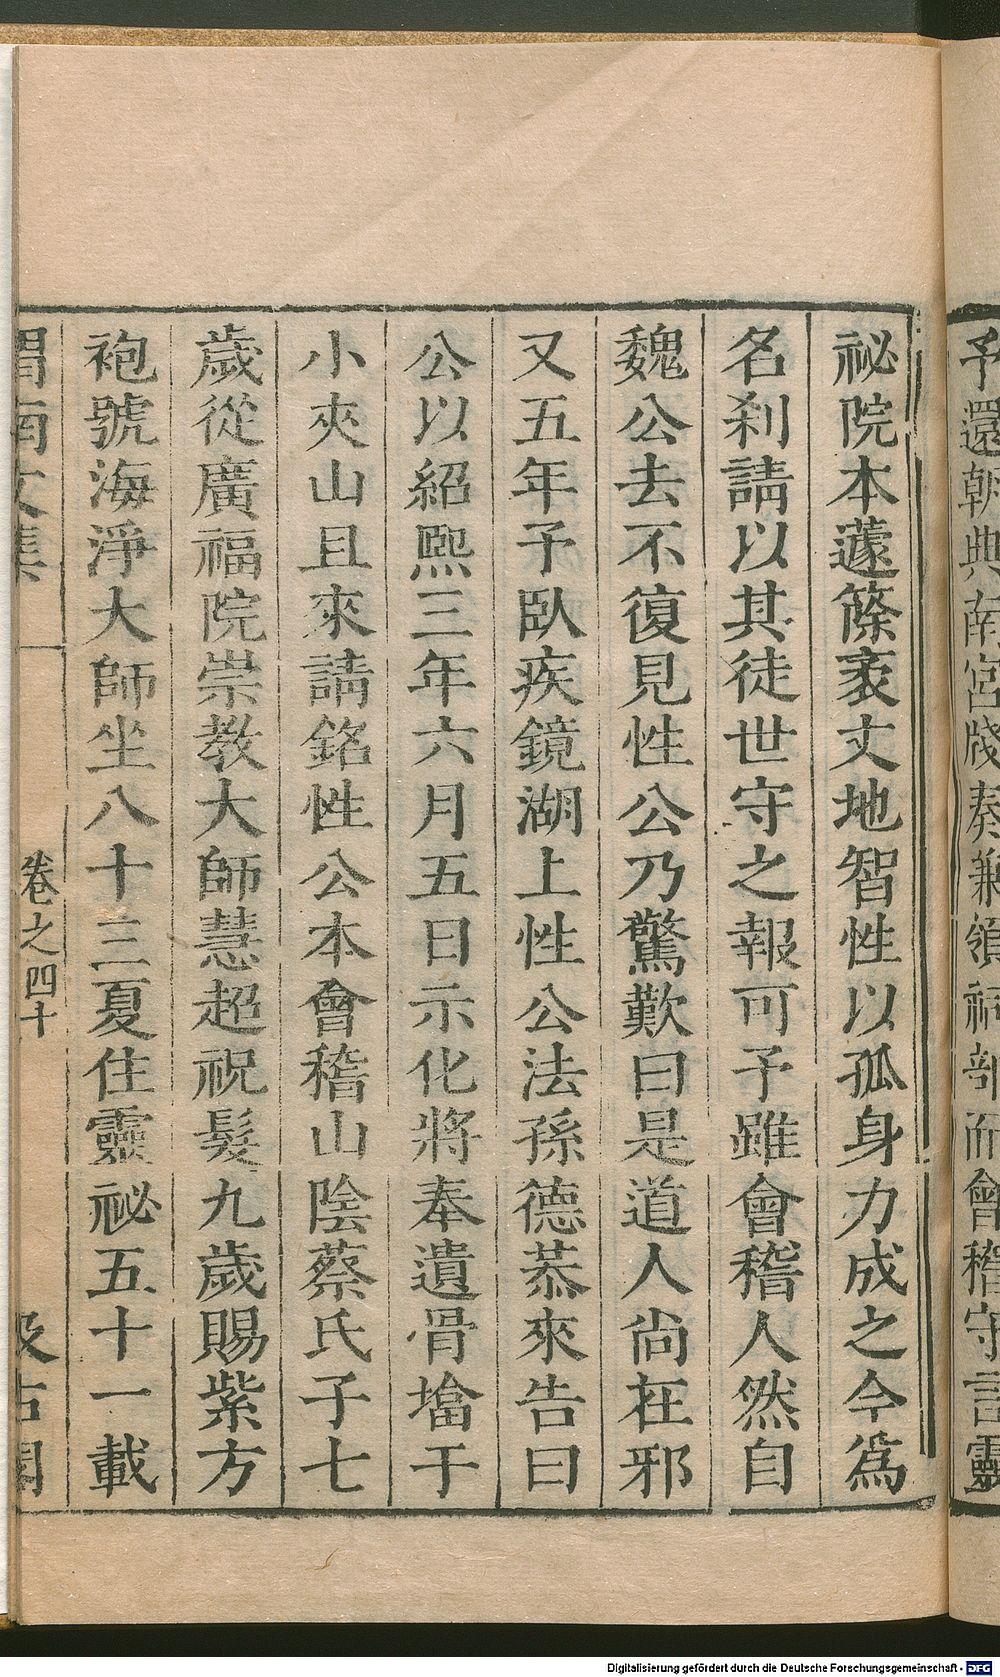 予還朝典南宮牋奏兼領祠部而會稽守言靈
祕院本蘧篨袤丈地智性以孤身力成之今爲
名刹請以其徒世守之報可予雖會稽人然自
魏公去不復見性公乃驚歎曰是道人尙在邪
又五年予臥疾鏡湖上性公法孫德恭來告曰
公以紹熙三年六月五日示化將奉遺骨塔于
小夾山且來請銘性公本會稽山陰蔡氏子七
歲從廣福院崇教大師慧超祝髮九歲賜紫方
袍號海淨大師坐八十三夏住靈祕五十一載
渭南文集 卷之四十 汲古閣
Digitalisierung gefördert durch die Deutsche Forschungsgemeinschaft - DFG